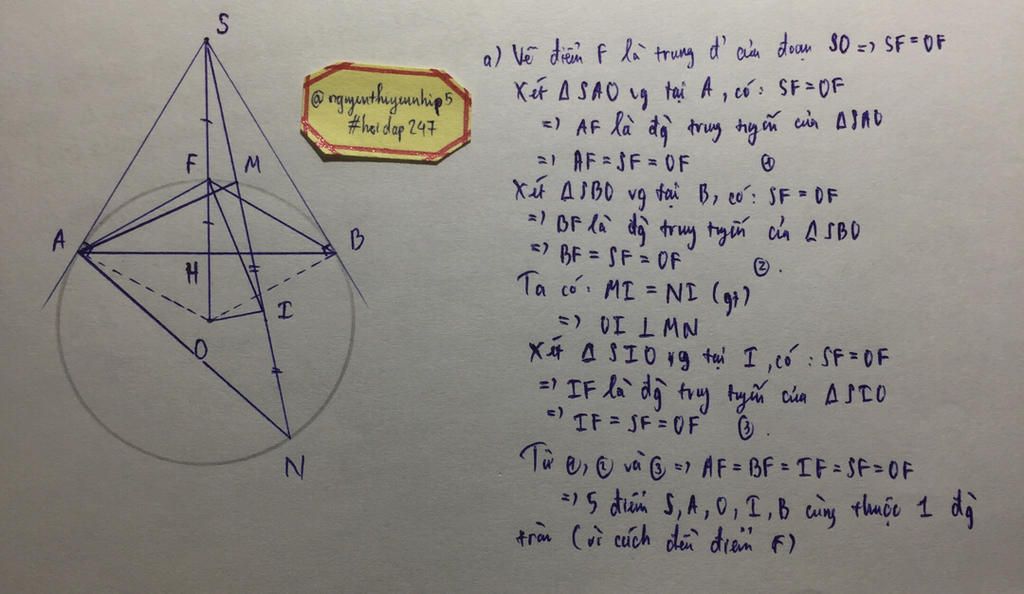 S
@nguyenthiyennhip5
#hoidap247
F
M
A
B
H
I
O
N
a) Vẽ điểm F là trung đ' của đoạn SO => SF = OF
Xét Δ SAO vg tại A, có: SF = OF
=> AF là đg trug tuyến của Δ SAO
=> AF = SF = OF ①
Xét Δ SBO vg tại B, có: SF = OF
=> BF là đg trug tuyến của Δ SBO
=> BF = SF = OF ②.
Ta có: MI = NI (gt)
=> OI ⊥ MN
Xét Δ SIO vg tại I, có: SF = OF
=> IF là đg trug tuyến của Δ SIO
=> IF = SF = OF ③.
Từ ①, ② và ③ => AF = BF = IF = SF = OF
=> 5 điểm S, A, O, I, B cùng thuộc 1 đg
tròn (vì cách đều điểm F)